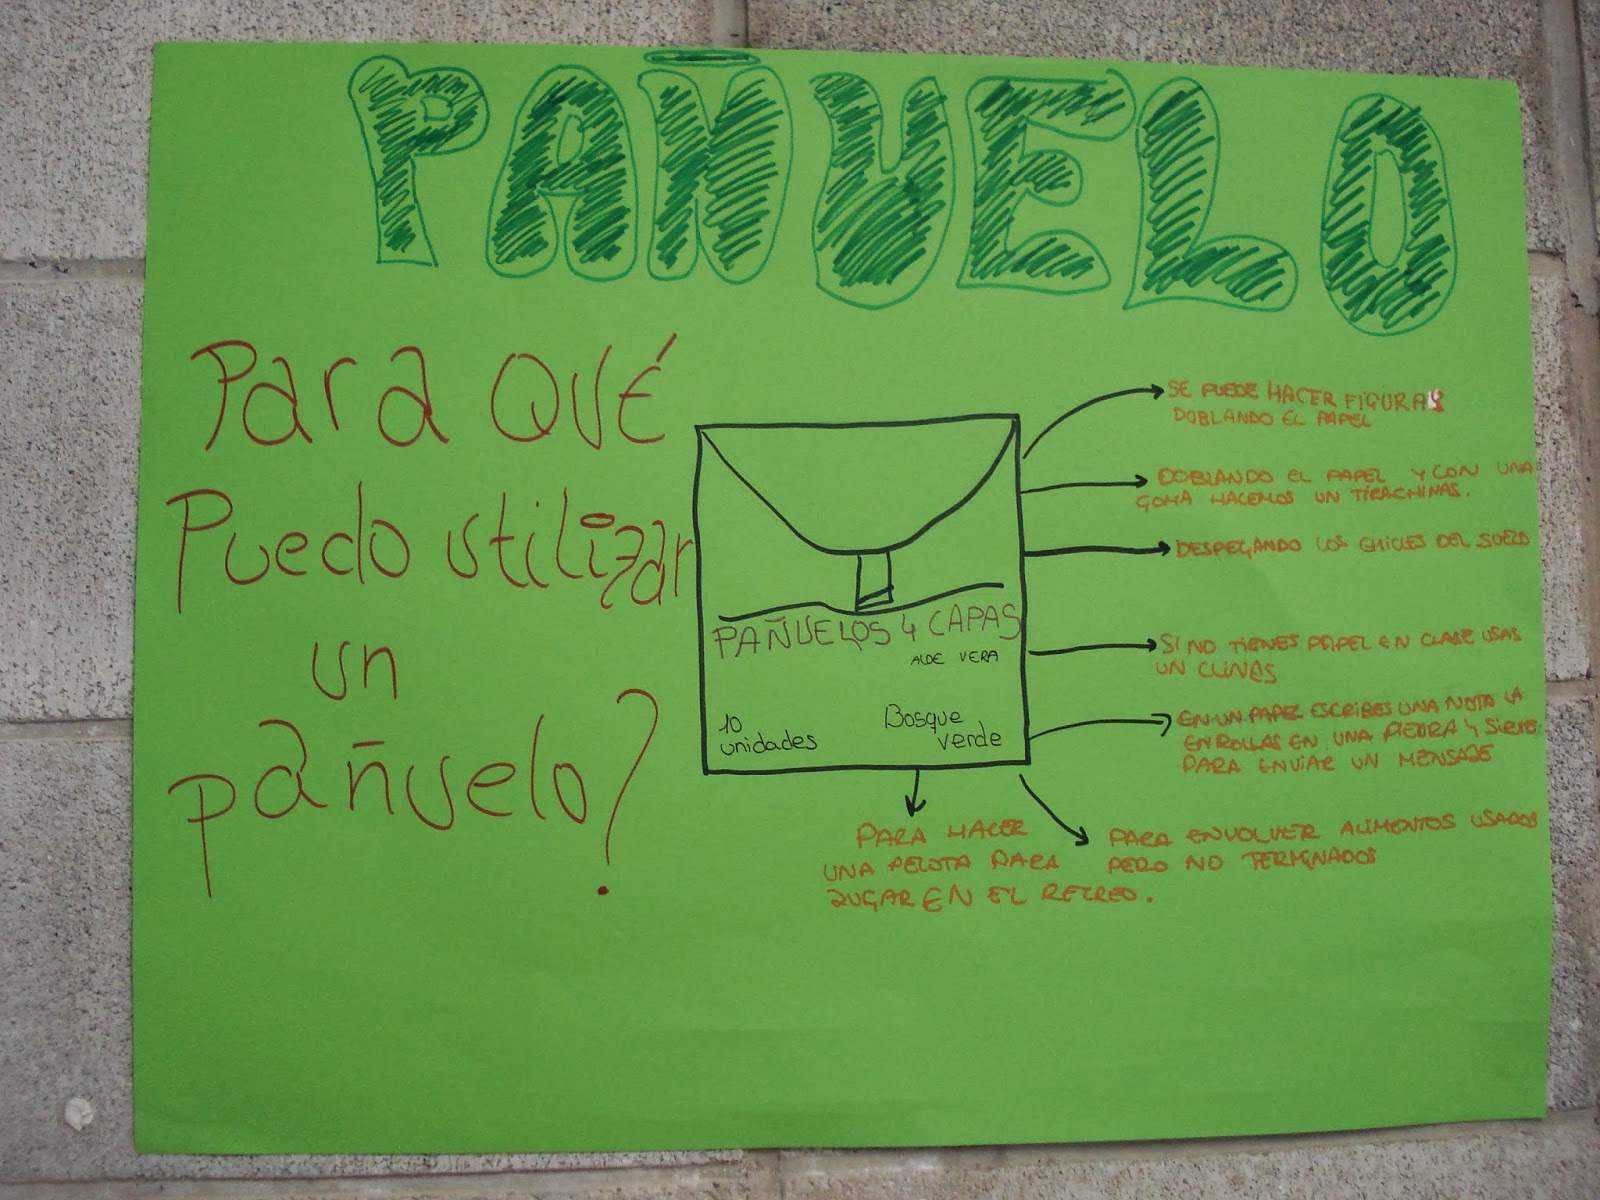 PAÑUELO
Para QUÉ
Puedo utilizar
un
pañuelo?
PAÑUELOS 4 CAPAS
ALOE VERA
10
unidades
Bosque
verde
SE PUEDE HACER FIGURAS
DOBLANDO EL PAPEL
DOBLANDO EL PAPEL Y CON UNA
GOMA HACEMOS UN TIRACHINAS.
DESPEGANDO LOS CHICLES DEL SUELO
SI NO TIENES PAPEL EN CLASE USAS
UN CLINES
EN UN PAPEL ESCRIBES UNA NOTA LA
ENROLLAS EN UNA PIEDRA Y SIRVE
PARA ENVIAR UN MENSAJE
PARA ENVOLVER ALIMENTOS USADOS
PERO NO TERMINADOS
PARA HACER
UNA PELOTA PARA
JUGAR EN EL RECREO.